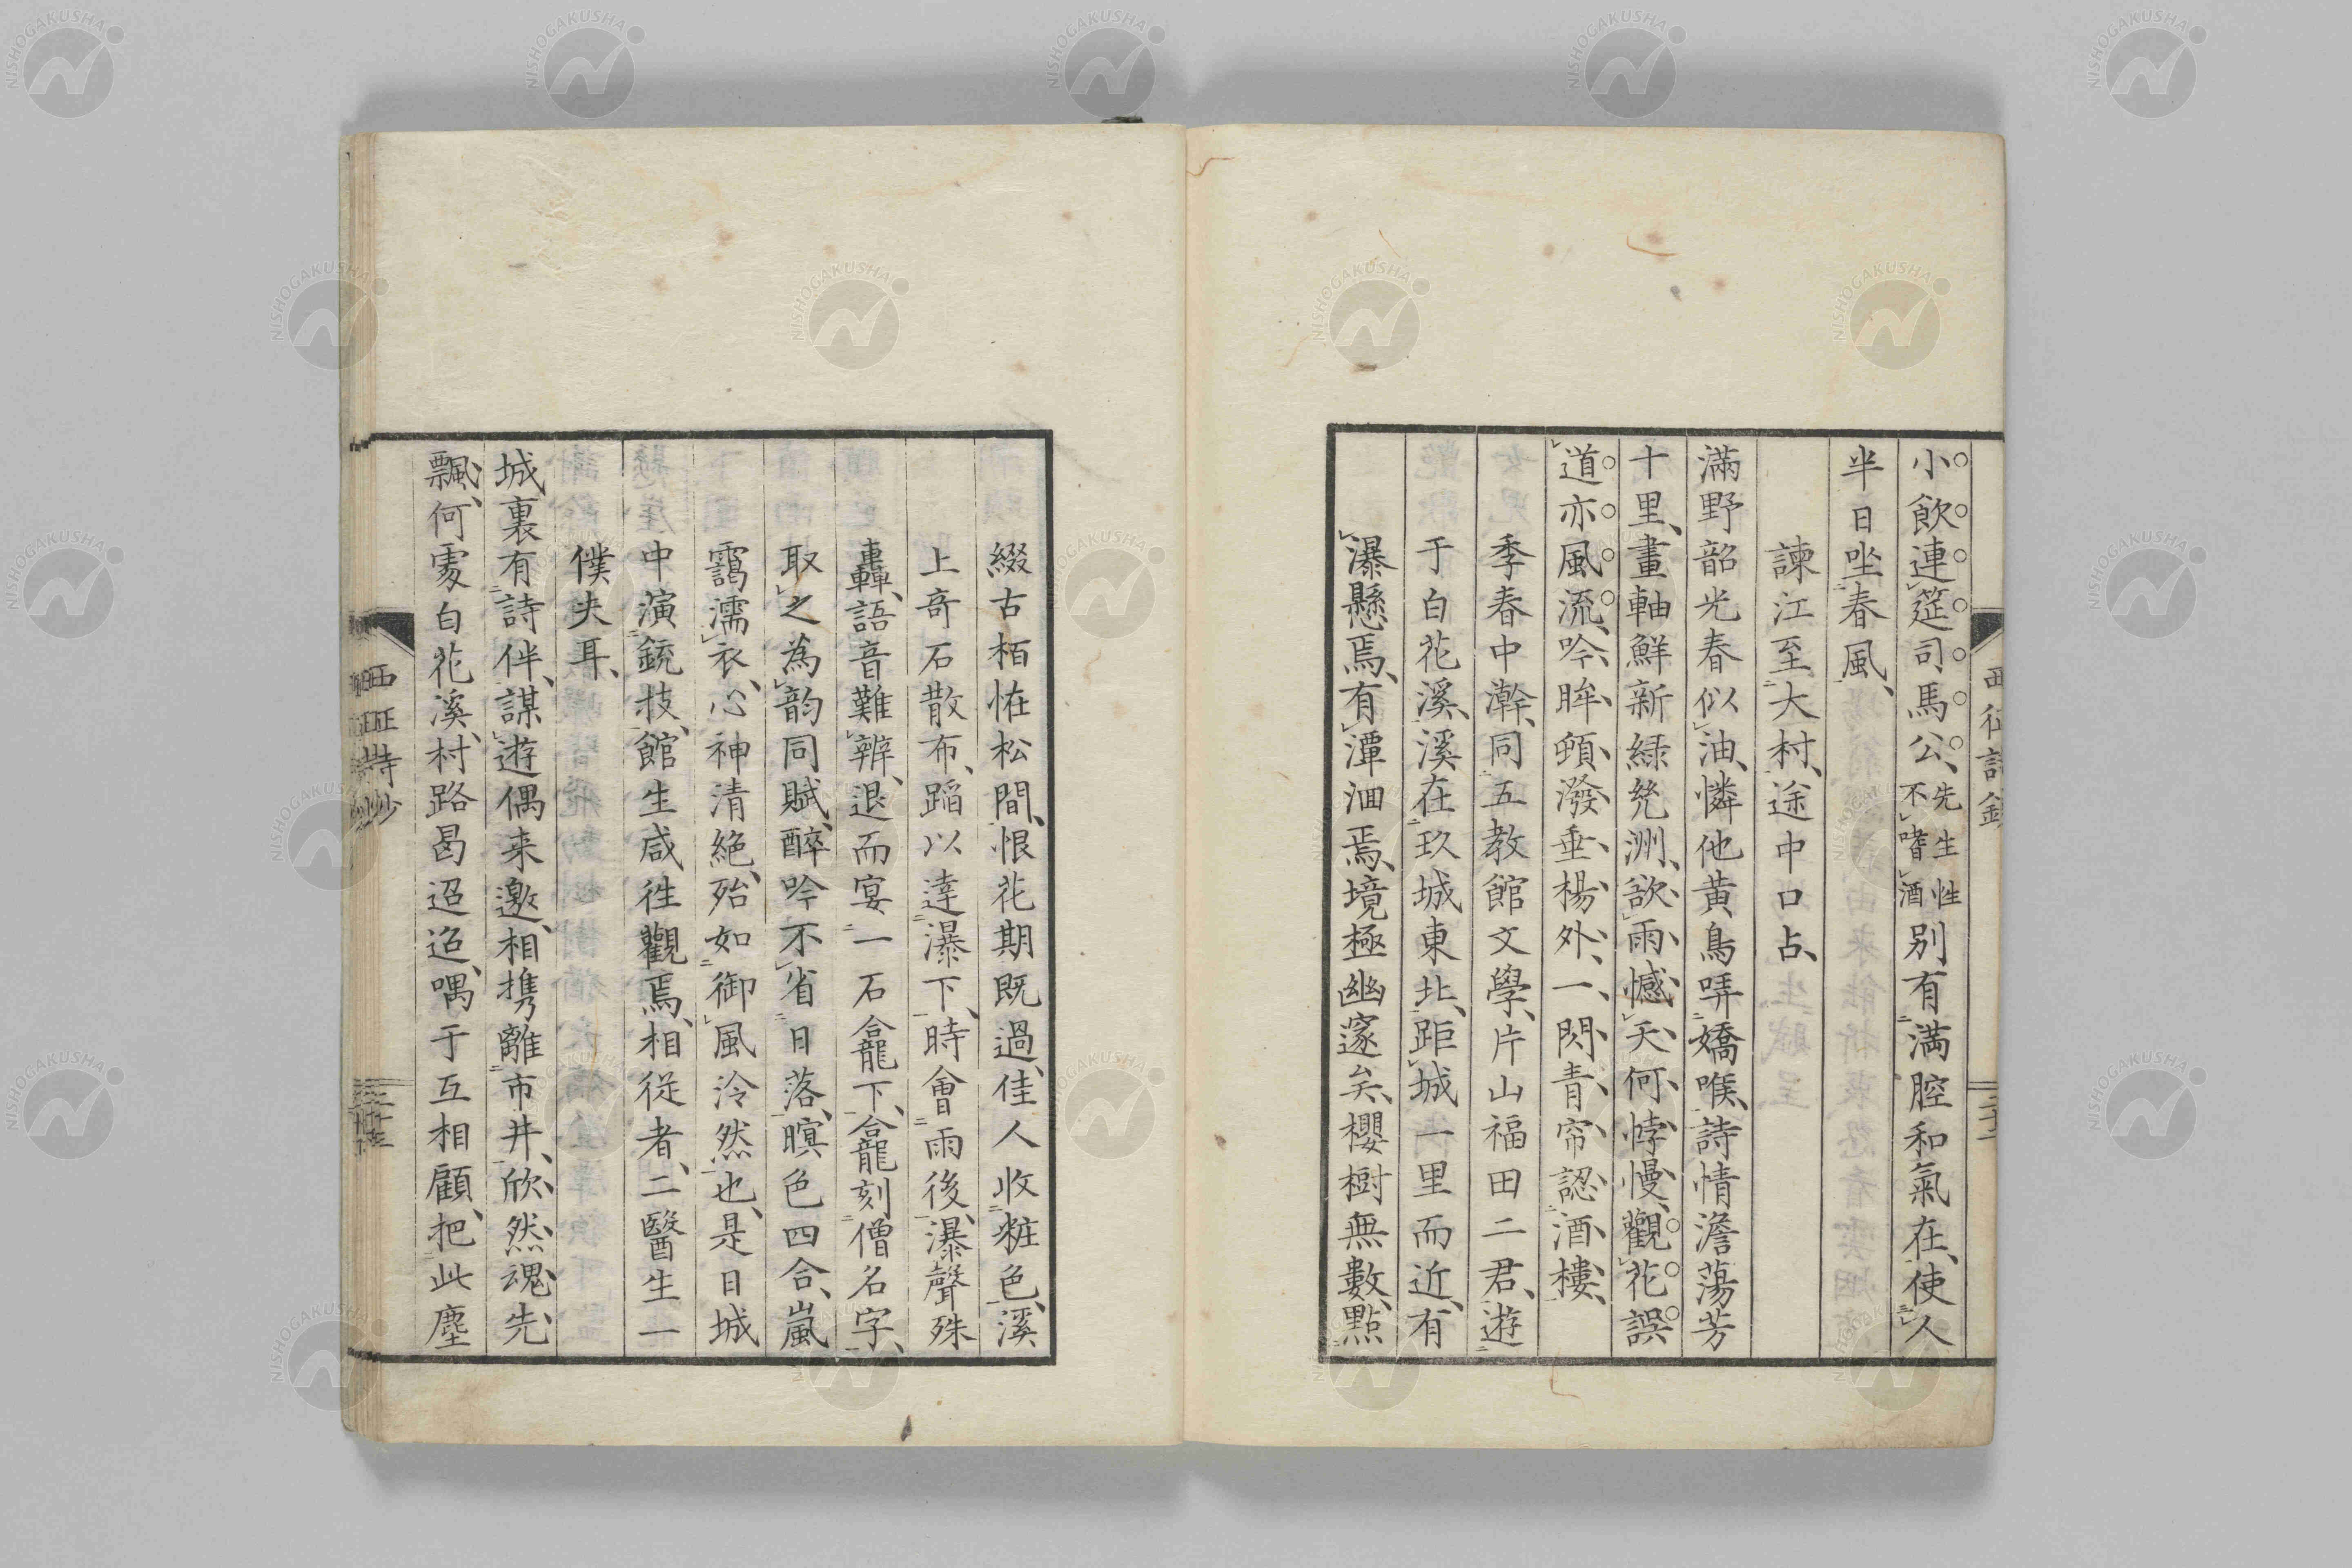 小飲連筵司馬公、先生性不嗜酒別有満腔和氣在、使人
半日坐春風、
諫江至大村、途中口占、
滿野韶光春似油、憐他黄鳥哢嬌喉、詩情澹蕩芳
十里、畫軸鮮新緑繞洲、欲雨憾天何悖慢、觀花誤
道亦風流、吟眸頻潑垂楊外、一閃青帘認酒樓、
季春中澣、同五教館文學、片山福田二君、遊
于白花溪、溪在玖城東北、距城一里而近、有
瀑懸焉、有潭洄焉、境極幽邃矣、櫻樹無數、點
綴古栢恠松間、恨花期既過、佳人收粧色、溪
上奇石散布、蹈以達瀑下、時會雨後、瀑聲殊
轟、語音難辨、退而宴一石龕下、龕刻僧名字、
取之為韵同賦、醉吟不省日落、暝色四合、嵐
靄濡衣、心神清絶、殆如御風泠然也、是日城
中演銃技、館生咸徃觀焉、相従者、二醫生一
僕夫耳、
城裏有詩伴、謀遊偶来邀、相携離市井、欣然魂先
飄、何處白花溪、村路曷迢迢、喁于互相顧、把此塵
西征詩鈔